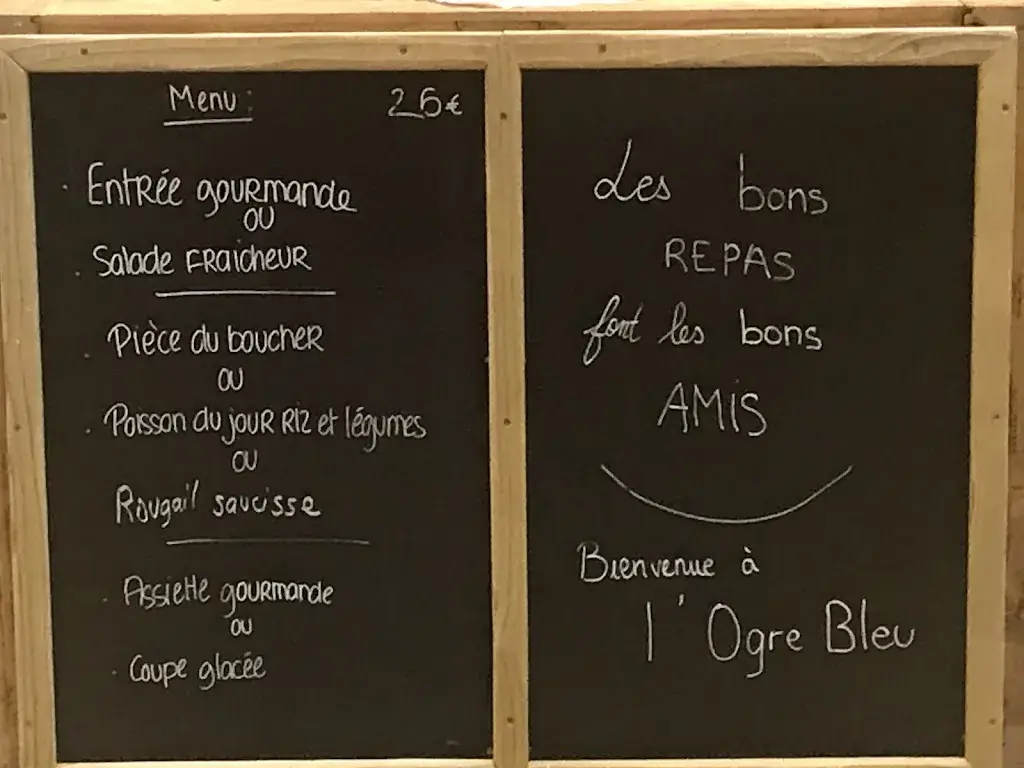 Menu : 26€
· Entrée gourmande
ou
· Salade Fraicheur
· Pièce du boucher
ou
· Poisson du jour Riz et légumes
ou
Rougail saucisse
· Assiette gourmande
ou
· Coupe glacée
Les bons
REPAS
font les bons
AMIS
Bienvenue à
l'Ogre Bleu